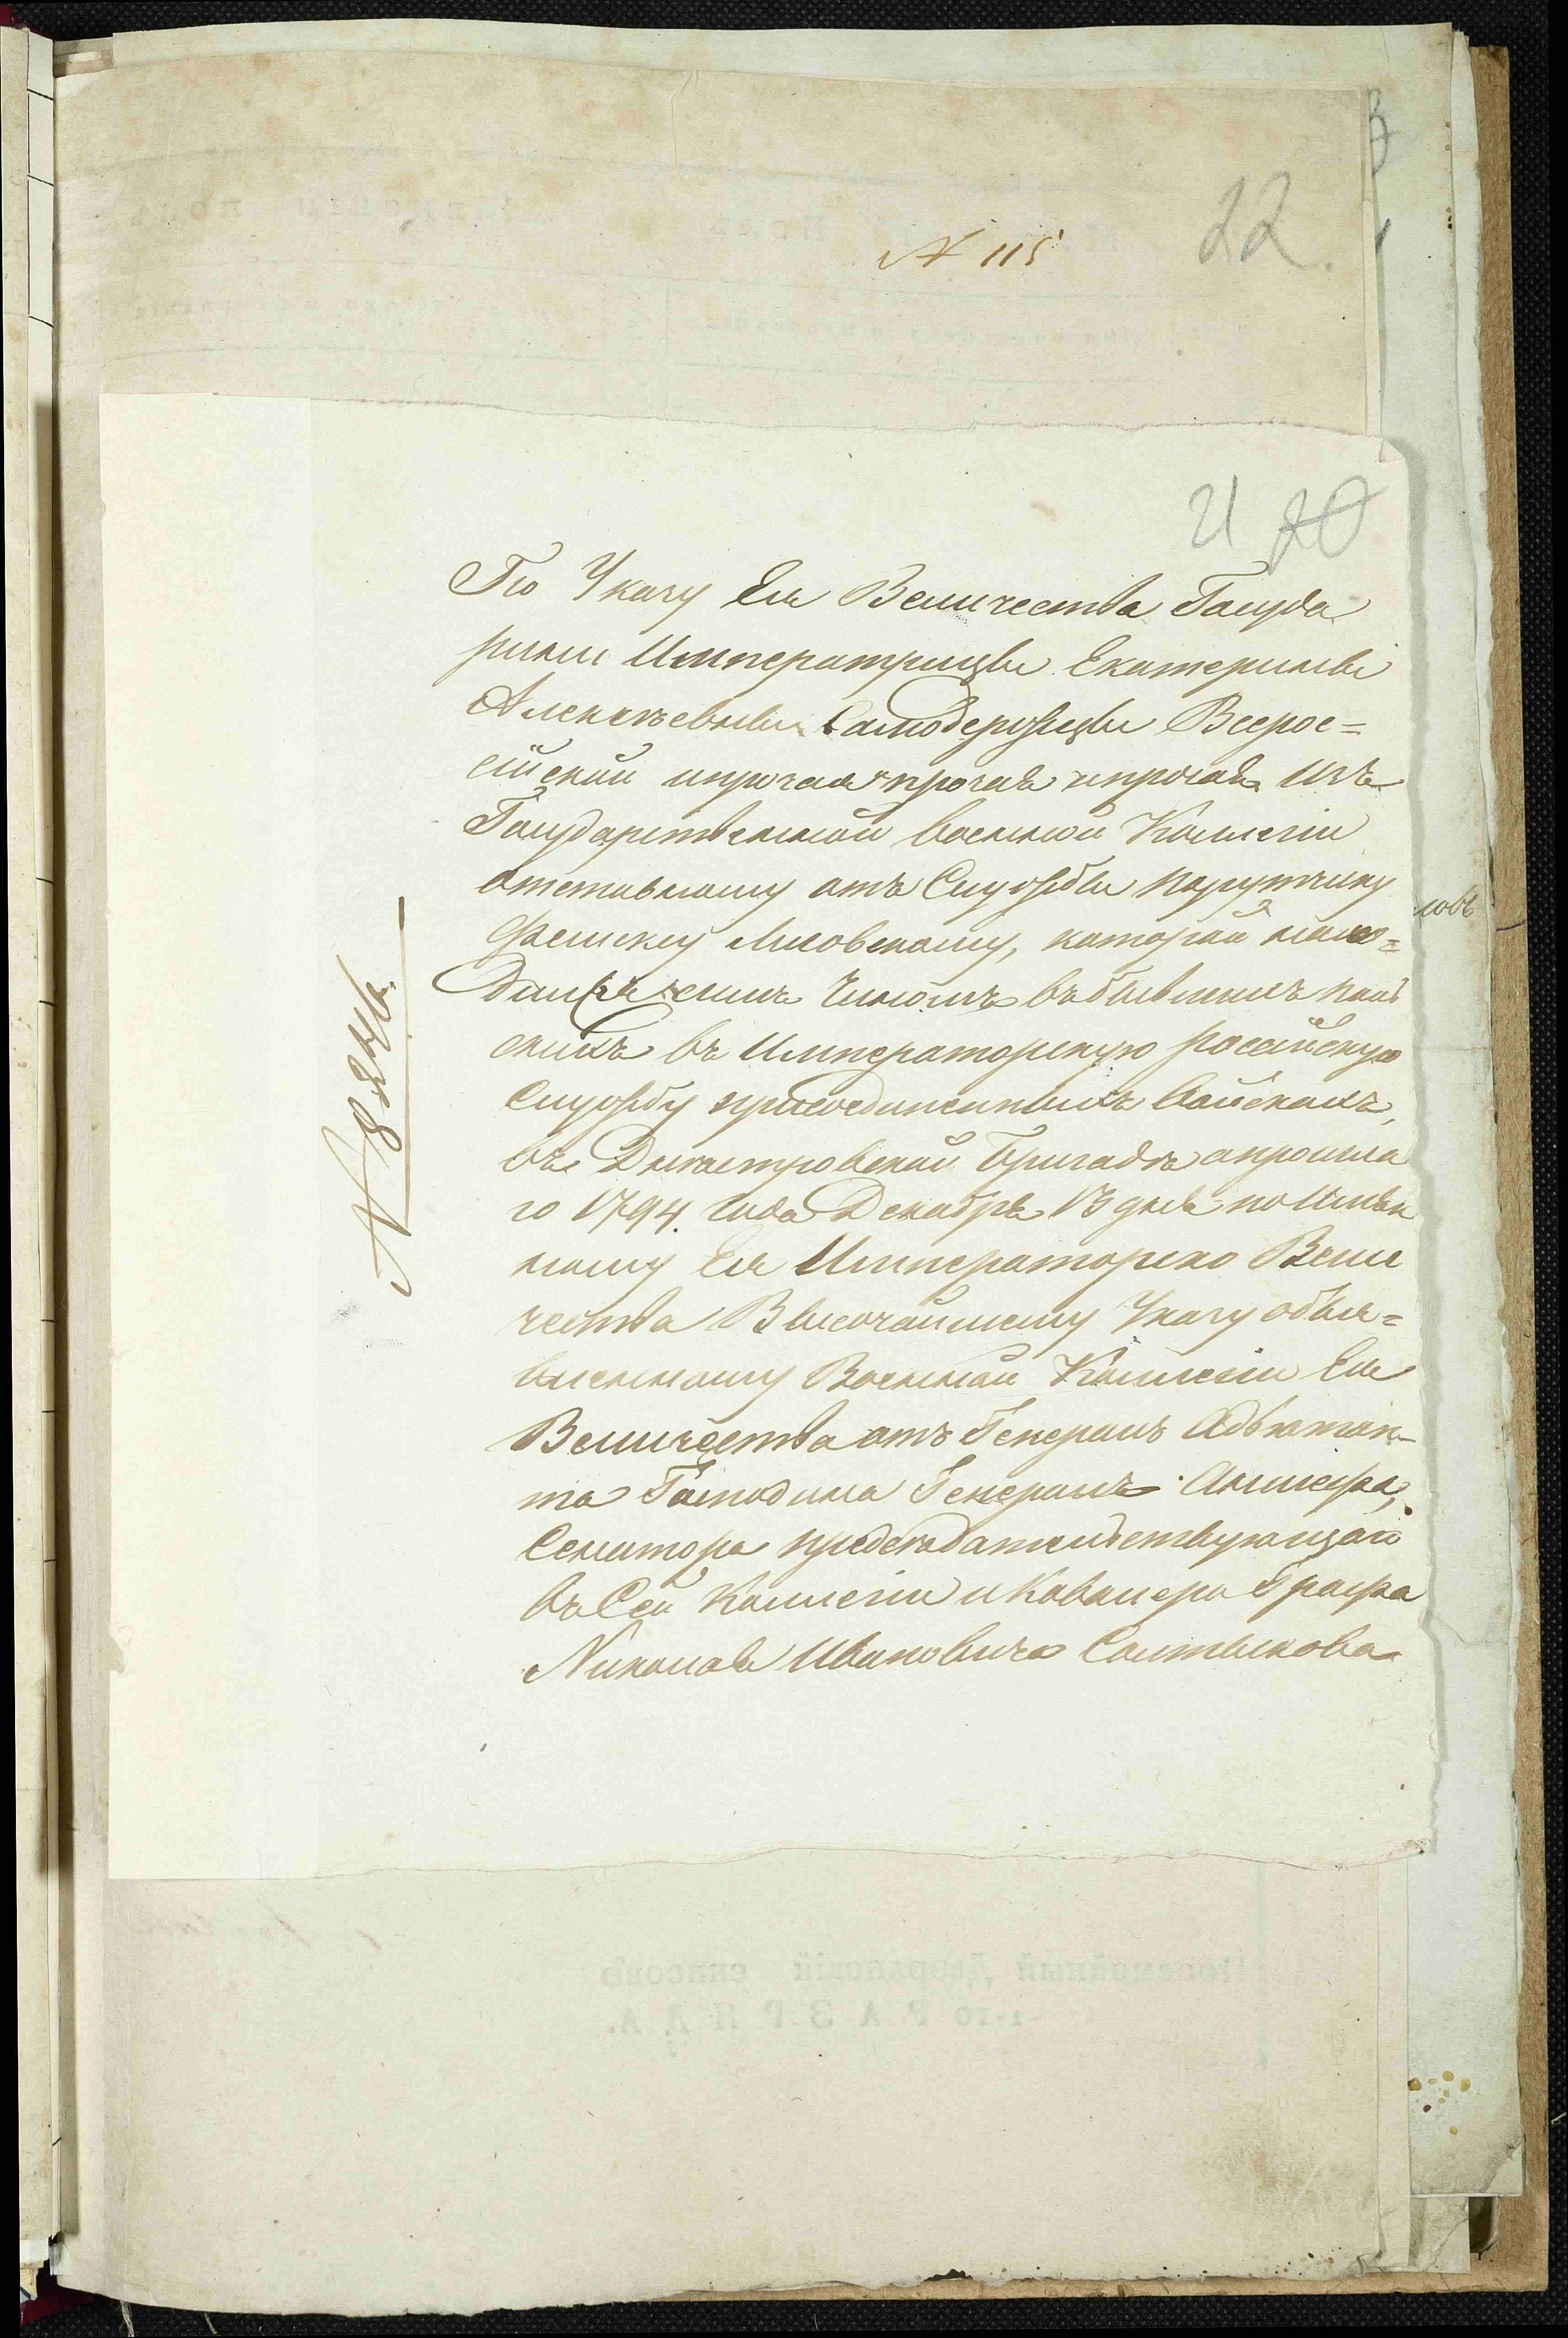 № 115
22.
21 20
По Указу Ея Величества Госуда
рини Императрицы Екатерины
Алексѣевны Самодержицы Всерос=
сійской ипрочая ипрочая ипрочая Изъ
Государственной военной Коллегіи
отставному отъ Службы порутчику
Феликсу Лисовскому, который нахо=
дился симъ Чиномъ въ бывшихъ поль
скихъ въ Императорскую россійскую
Службу присоединенныхъ Войскахъ,
въ Днѣстровской Бригадѣ апрошла
го 1794. года Декабря 13 дня по Имян
ному Ея Императорско Вели
чества Высочайшему Указу объя=
вленному Военной Коллегіи Ея
Величества отъ Генералъ Адъютан-
та Господина Генералъ Аншефа,
Сенатора председательствующаго
въ Сей Коллегіи и Кавалера Графа
Николая Ивановича Салтыкова
№ 8246.
ловъ
дворянскій списокъ
1-го РАЗРЯДА.